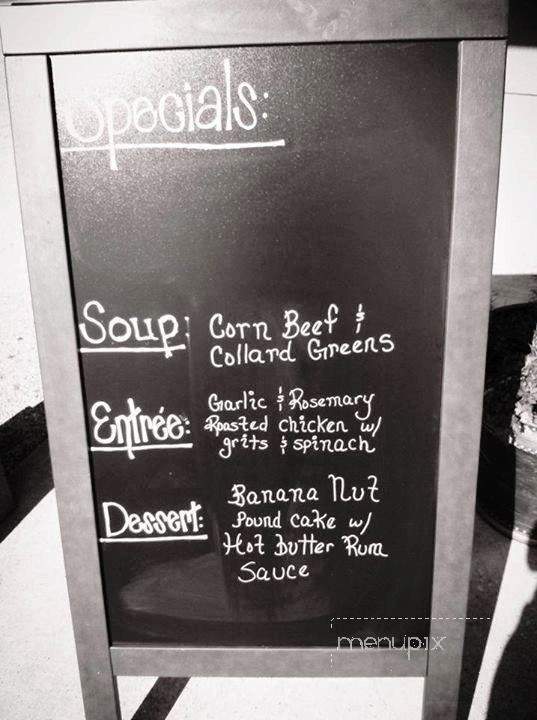 Specials:
Soup: Corn Beef &
Collard Greens
Entrée: Garlic & Rosemary
Roasted chicken w/
grits & spinach
Dessert: Banana Nut
Pound cake w/
Hot Butter Rum
Sauce
menupix